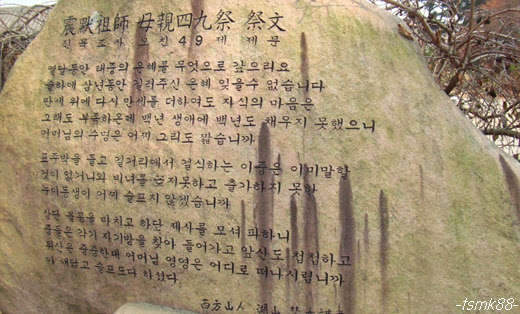 震默祖師 母親四九祭 祭文
진묵조사 모친49제 제문
열달동안 태중의 은혜를 무엇으로 갚으리요
슬하에 삼년동안 길러주신 은혜 잊을수 없습니다
만세 위에 다시 만세를 더하여도 자식의 마음은
그래도 부족하온데 백년 생애에 백년도 채우지 못했으니
어머님의 수명은 어찌 그리도 짧습니까
표주박을 들고 길거리에서 걸식하는 이중은 이미말할
것이 없거니와 비녀를 꽂지못하고 출가하지 못한
누이동생이 어찌 슬프지 않겠습니까
상단 불공을 마치고 하단 제사를 모셔 파하니
중들은 각기 자기방을 찾아 들어가고 앞산도 첩첩하고
뒷산은 중중한데 어머님 영영은 어디로 떠나시렵니까
아 애닯고 슬프도다 하셨다
山人 湖山
-tsmk88-